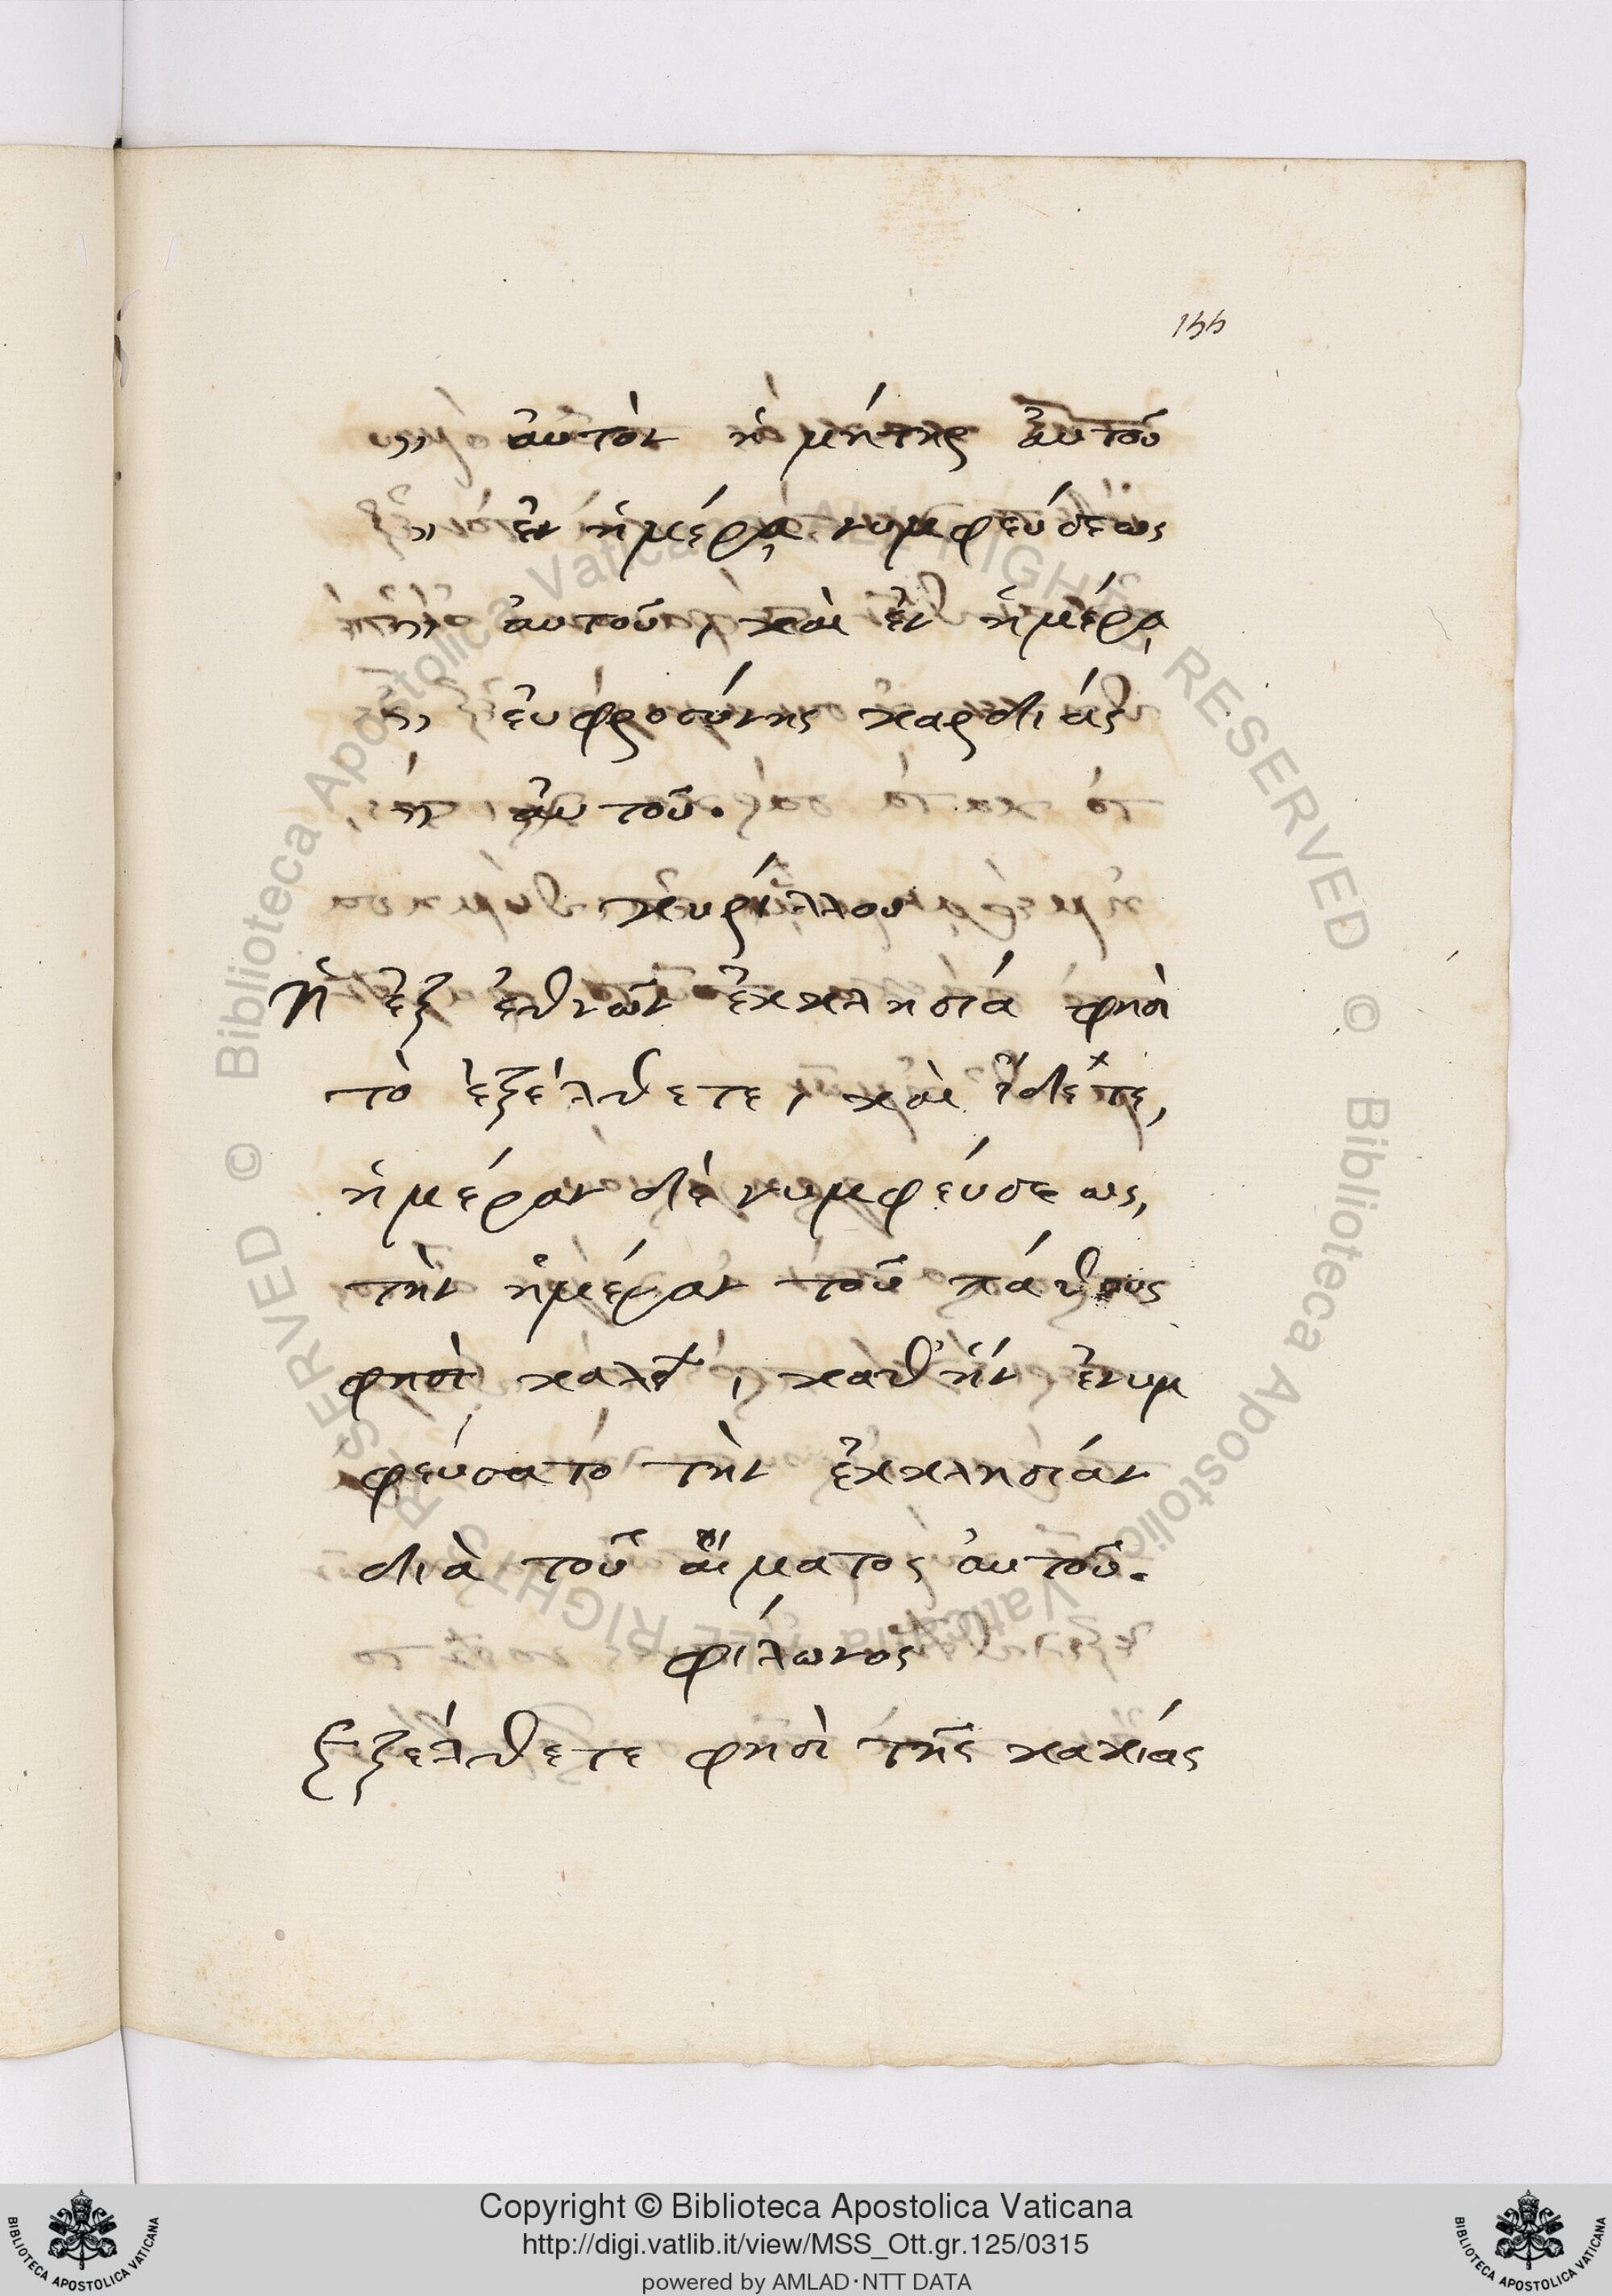 155
,, ἀυτὸν ἡ μήτηρ ἀυτοῦ
,, ἐν ἡμέρᾳ νυμφεύσεως
,, ἀυτοῦ, καὶ ἐν ἡμέρᾳ
,, ἐυφροσύνης καρδίας
,, ἀυτοῦ.
κυρίλλου
Ἡ ἐξ ἐθνῶν ἐκκλησία φησὶ
τὸ ἐξέλθετε, καὶ ἴδετε,
ἡμέραν δὲ νυμφεύσεως,
τὴν ἡμέραν τοῦ πάθους
φησὶ καλεῖ, καθ' ἣν ἐνυμ
φεύσατο τὴν ἐκκλησίαν
διὰ τοῦ αἵματος ἀυτοῦ.
φίλωνος
Ἐξέλθετε φησὶ τῆς κακίας
© Biblioteca Apostolica Vaticana ALL RIGHTS RESERVED © Biblioteca Apostolica Vaticana ALL RIGHTS RESERVED
BIBLIOTECA APOSTOLICA VATICANA
Copyright © Biblioteca Apostolica Vaticana
http://digi.vatlib.it/view/MSS_Ott.gr.125/0315
powered by AMLAD·NTT DATA
BIBLIOTECA APOSTOLICA VATICANA